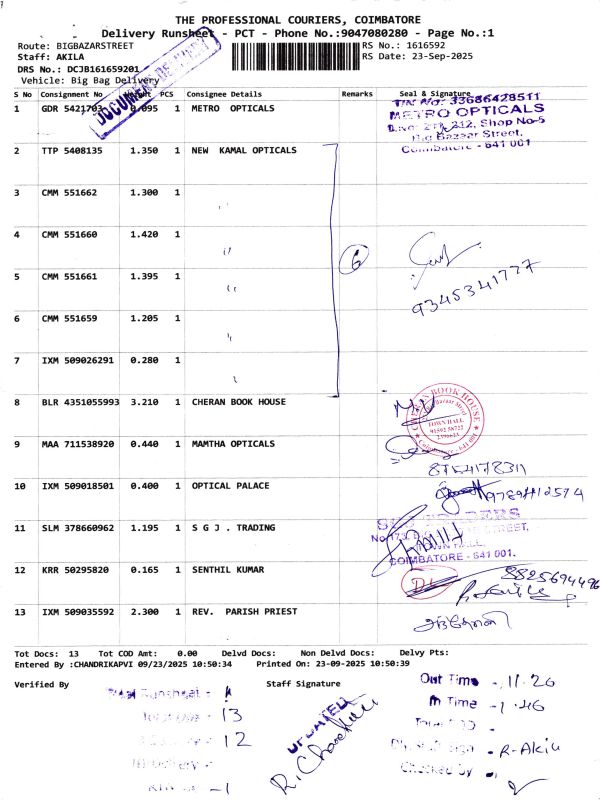 THE PROFESSIONAL COURIERS, COIMBATORE
Delivery Runsheet - PCT - Phone No.:9047080280 - Page No.:1
Route: BIGBAZARSTREET
RS No.: 1616592
Staff: AKILA
RS Date: 23-Sep-2025
DRS No.: DCJB161659201
Vehicle: Big Bag Delivery
S No Consignment No Weight PCS Consignee Details Remarks Seal & Signature
1 GDR 5421703 0.095 1 METRO OPTICALS
TIN No: 33686428511
METRO OPTICALS
212, Shop No-5
Big Bazaar Street,
Coimbatore - 641 001
2 TTP 5408135 1.350 1 NEW KAMAL OPTICALS
3 CMM 551662 1.300 1 "
4 CMM 551660 1.420 1 "
6
5 CMM 551661 1.395 1 "
9345341727
6 CMM 551659 1.205 1 "
7 IXM 509026291 0.280 1 "
8 BLR 4351055993 3.210 1 CHERAN BOOK HOUSE
CHERAN BOOK HOUSE
TOWN HALL
Coimbatore - 641 001
9 MAA 711538920 0.440 1 MAMTHA OPTICALS
10 IXM 509018501 0.400 1 OPTICAL PALACE
11 SLM 378660962 1.195 1 S G J . TRADING
STREET,
TOWN HALL
COIMBATORE - 641 001.
12 KRR 50295820 0.165 1 SENTHIL KUMAR
8825694496
13 IXM 509035592 2.300 1 REV. PARISH PRIEST
Tot Docs: 13 Tot COD Amt: 0.00 Delvd Docs: Non Delvd Docs: Delvy Pts:
Entered By :CHANDRIKAPVI 09/23/2025 10:50:34 Printed On: 23-09-2025 10:50:39
Verified By
Staff Signature
Out Time - 11.26
In Time - 1.46
Runsheet -
13
12
- 1
UPDATED
R-Akila
Checked by